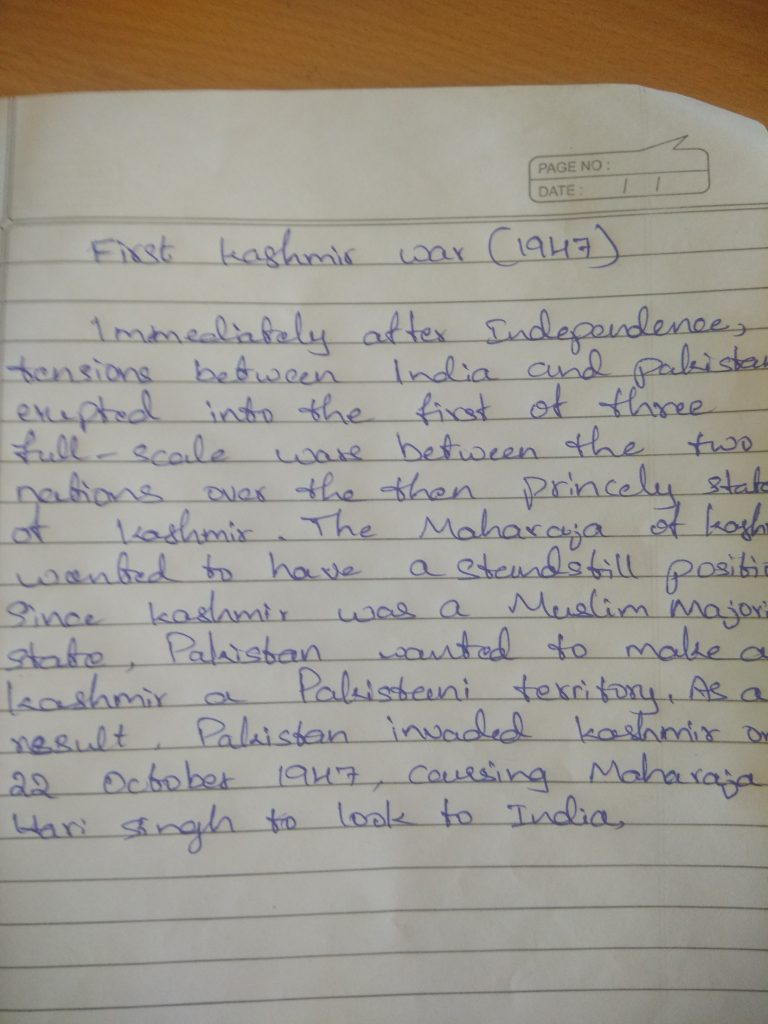 PAGE NO :
DATE : / /
First Kashmir war (1947)
Immediately after Independence,
tensions between India and Pakistan
erupted into the first of three
full-scale wars between the two
nations over the then princely state
of Kashmir. The Maharaja of Kash
wanted to have a standstill positi
Since Kashmir was a Muslim Majori
state, Pakistan wanted to make a
Kashmir a Pakistani territory. As a
result, Pakistan invaded Kashmir on
22 October 1947, causing Maharaja
Hari Singh to look to India,